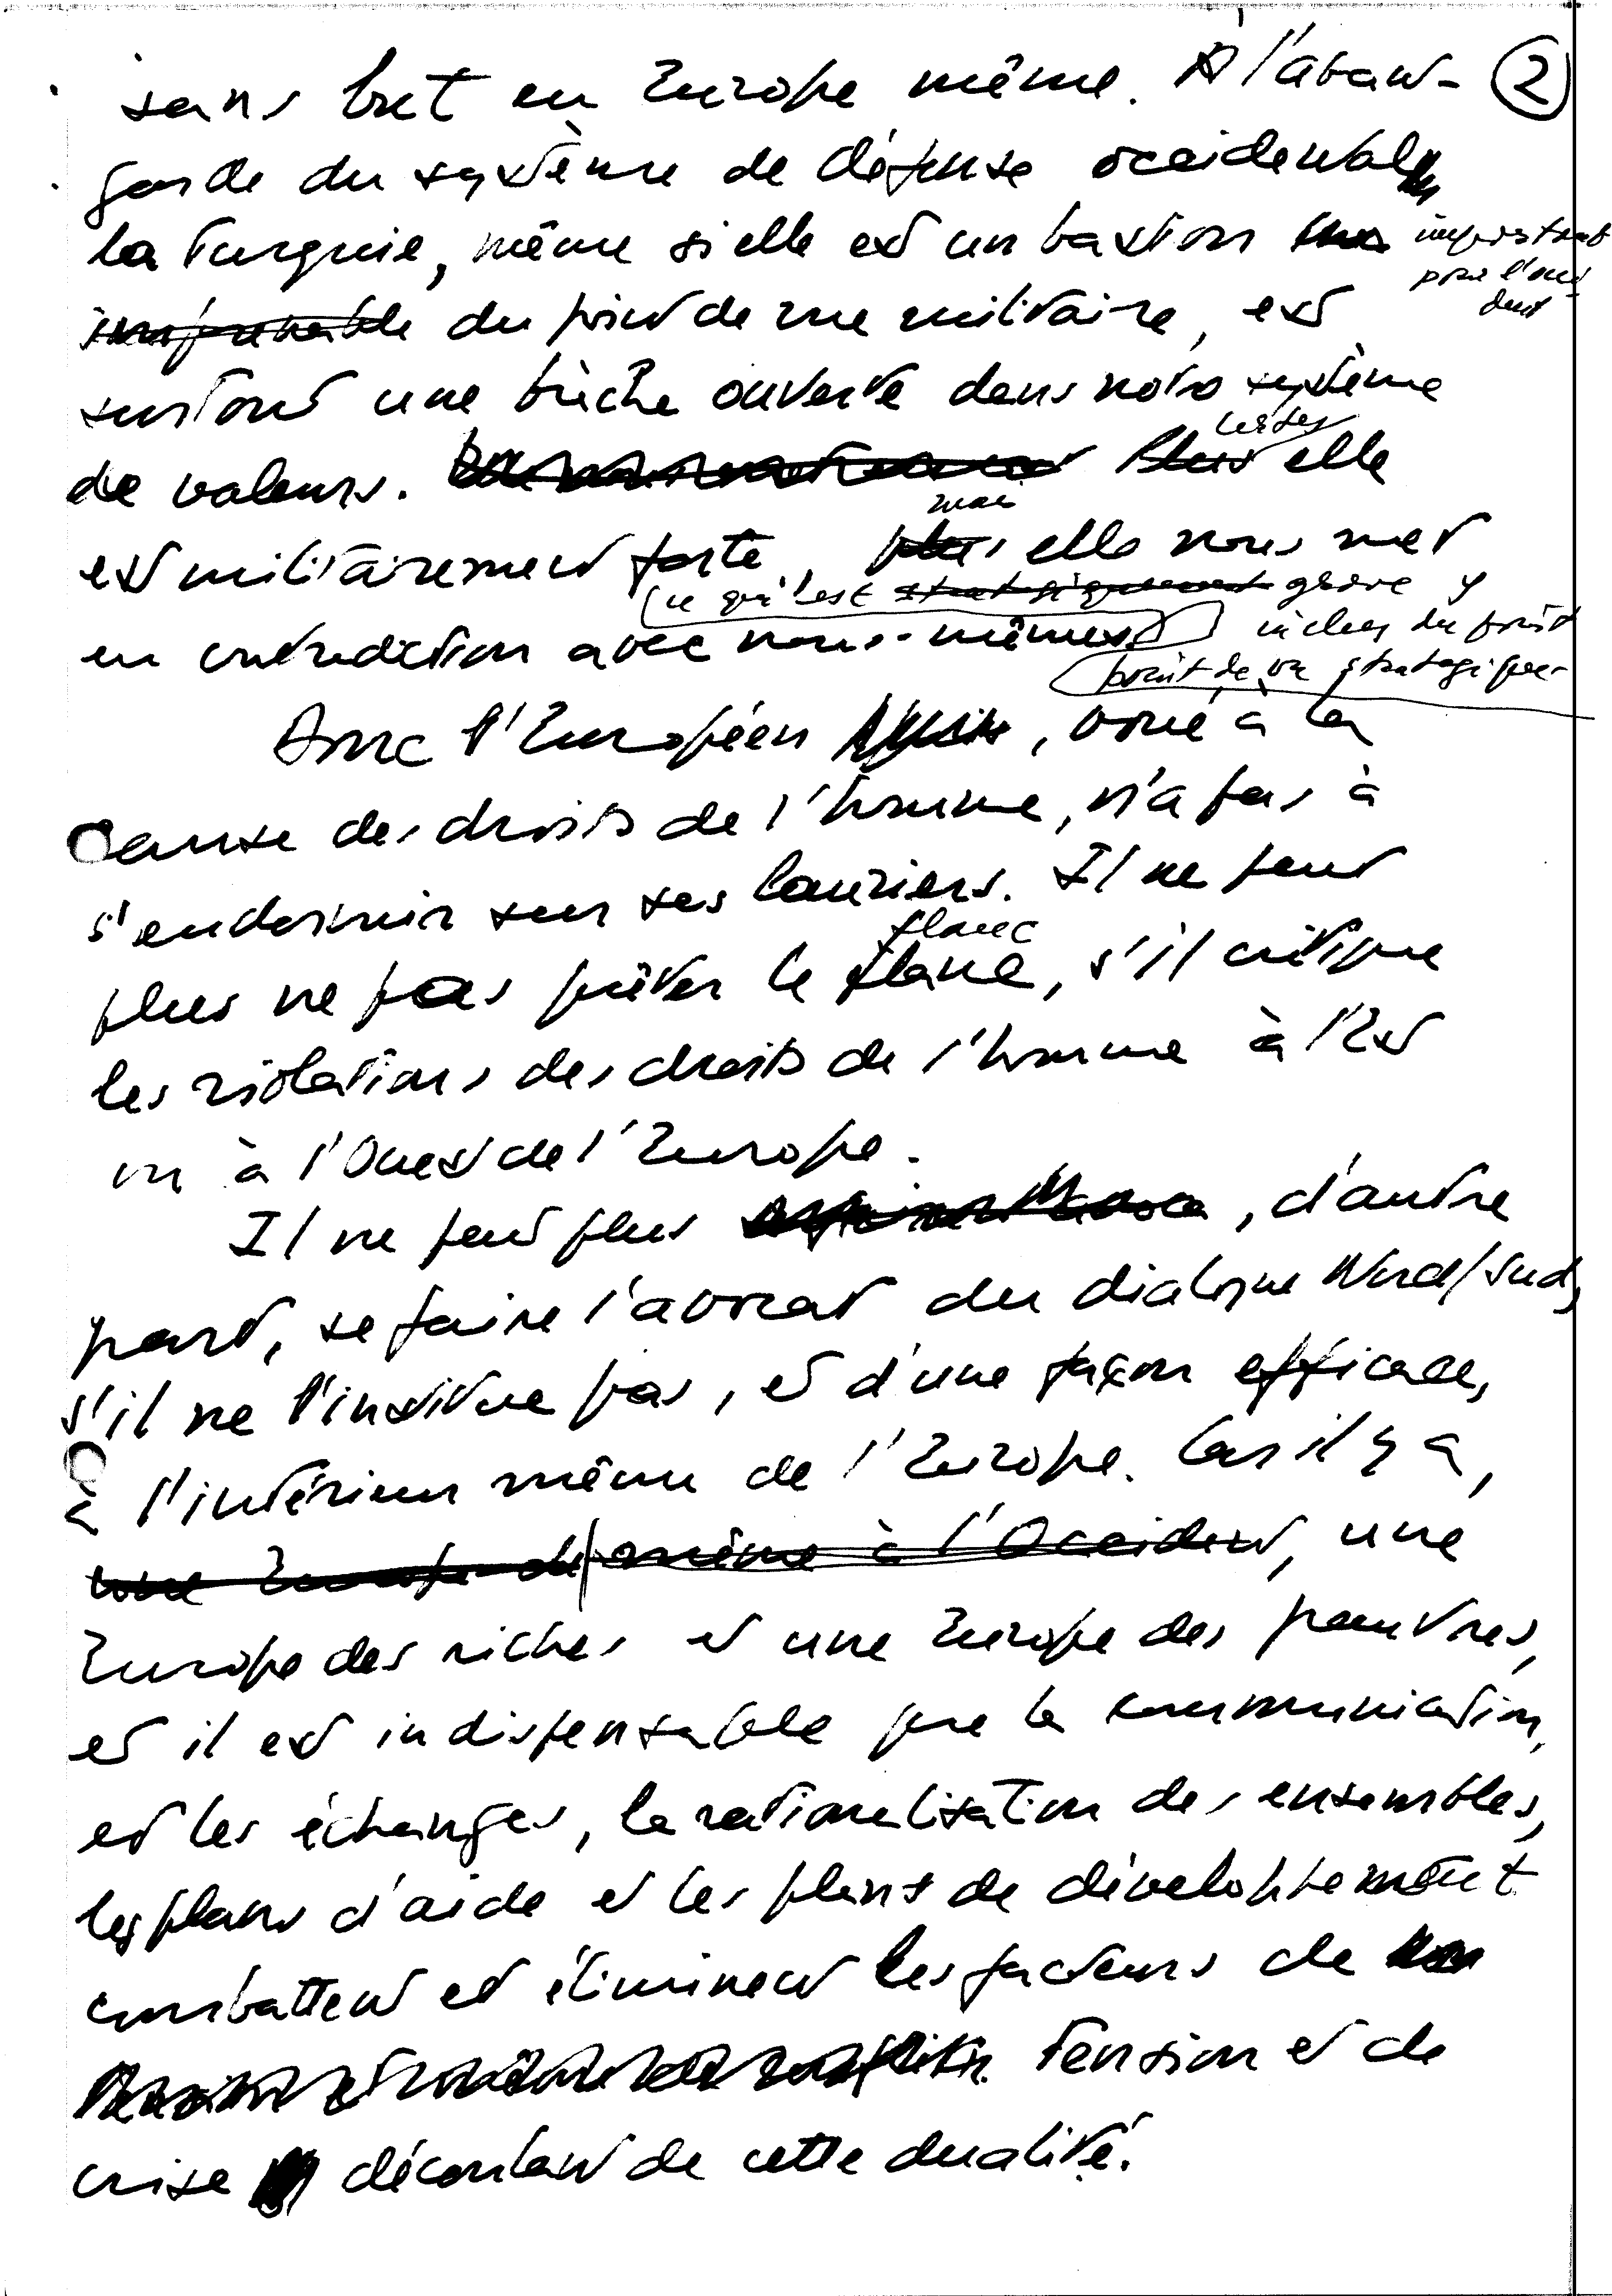 ②
sans but en Europe même. A l'abaw-
garde du système de défense occidental,
la Turquie, même si elle est un bastion important
pour l'occi-
dent
imprenable du point de vue militaire, est
surtout une brèche ouverte dans notre système
certes
de valeurs. Plus elle
mais
est militairement forte, plus elle nous met
ce qu'est stratégiquement grave y
en contradiction avec nous-mêmes. inclus du point
point de vue stratégique
Donc l'Européen, voué à la
cause des droits de l'homme, n'a pas à
s'endormir sur ses lauriers. Il ne peut
flanc
plus ne pas prêter le flanc, s'il critique
les violations des droits de l'homme à l'Est
ou à l'Ouest de l'Europe.
Il ne peut plus, d'autre
part, se faire l'avocat du dialogue Nord/Sud,
s'il ne l'institue pas, et d'une façon efficace,
à l'intérieur même de l'Europe. Car il y a,
une Europe de même à l'Occident, une
Europe des riches et une Europe des pauvres,
et il est indispensable que la communication,
et les échanges, la rationalisation des ensembles,
les plans d'aide et les plans de développement
combattent et éliminent les facteurs de
tension et de
crise découlant de cette dualité.